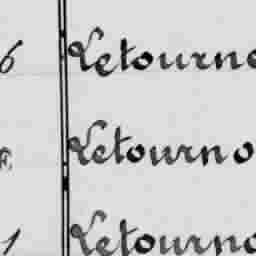 6 Letourne
E Letourno
1 Letourno